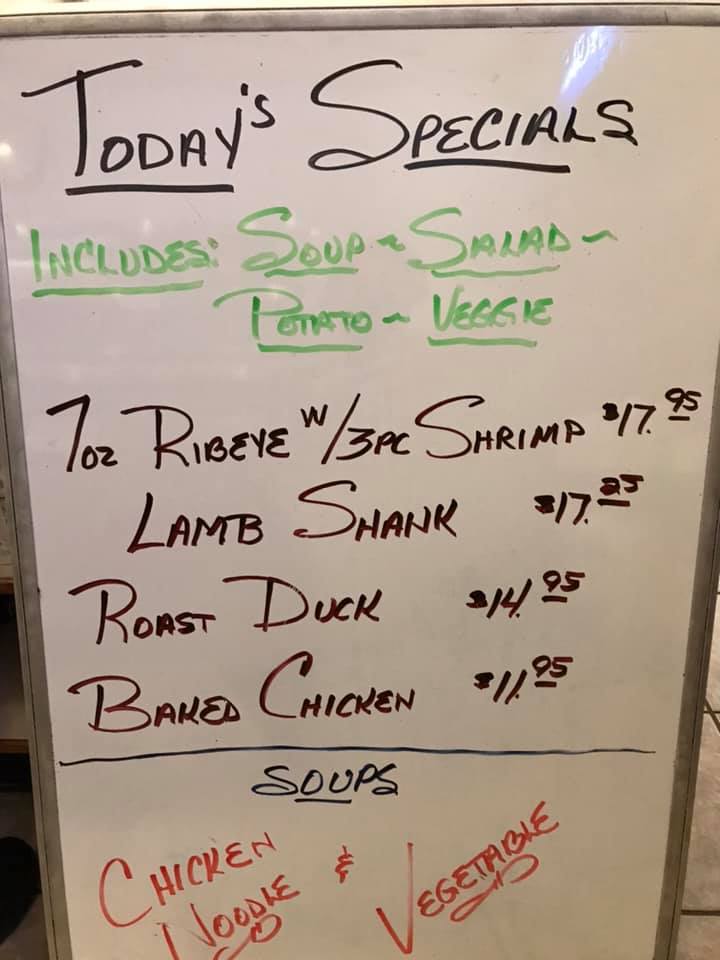 TODAY'S SPECIALS
INCLUDES: SOUP ~ SALAD ~
POTATO ~ VEGGIE
7oz RIBEYE W/3PC SHRIMP $17.95
LAMB SHANK $17.25
ROAST DUCK $14.95
BAKED CHICKEN $11.95
SOUPS
CHICKEN NOODLE & VEGETABLE